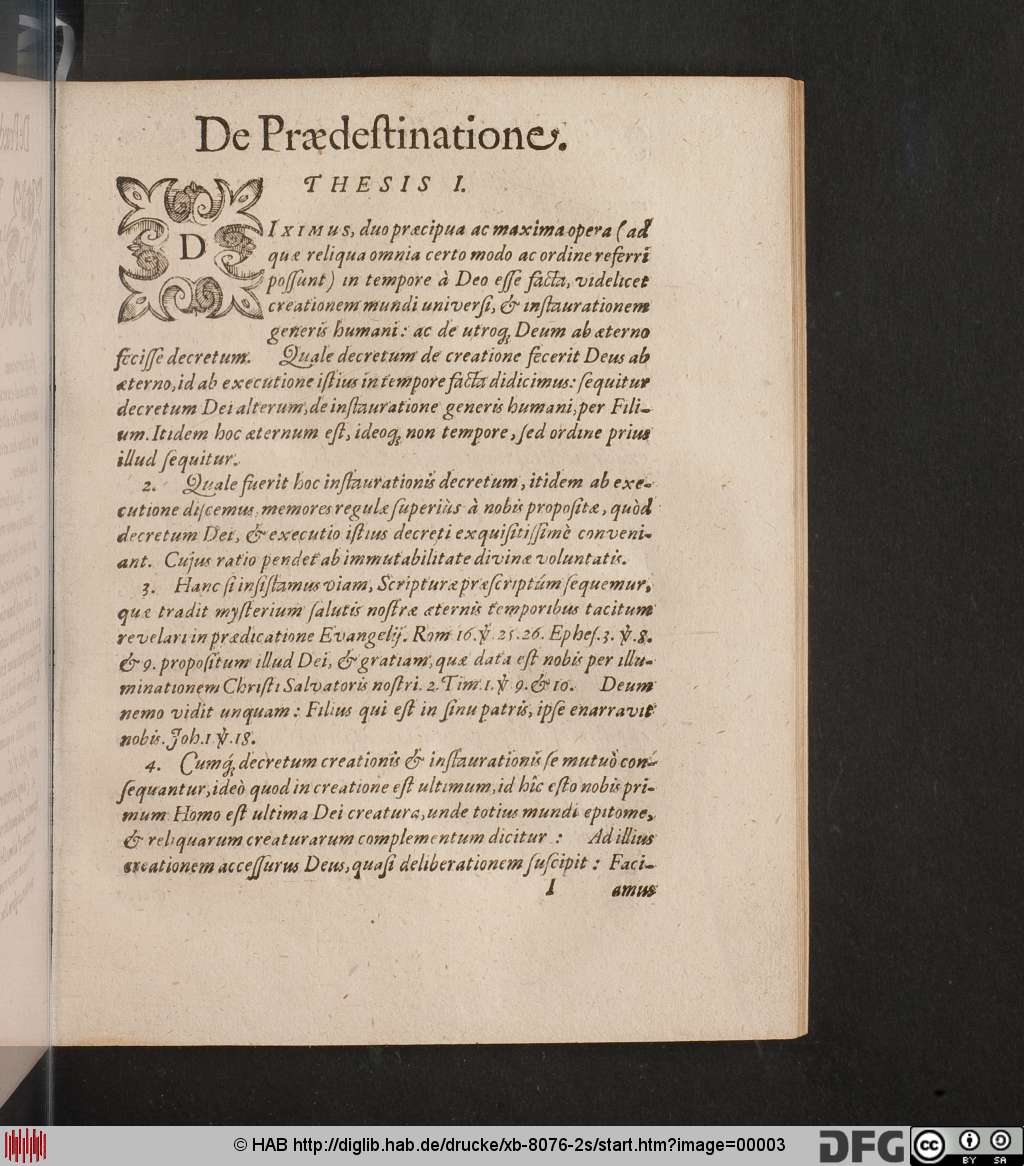 De Prædeſtinatione.
THESIS I.
DIXIMUS, duo præcipua ac maxima opera (ad
quæ reliqua omnia certo modo ac ordine referri
poſſunt) in tempore à Deo eſſe facta, videlicet
creationem mundi univerſi, & inſtaurationem
generis humani: ac de utroq; Deum ab æterno
feciſſe decretum. Quale decretum de creatione fecerit Deus ab
æterno, id ab executione iſtius in tempore facta didicimus: ſequitur
decretum Dei alterum, de inſtauratione generis humani, per Fili-
um. Itidem hoc æternum eſt, ideoq; non tempore, ſed ordine prius
illud ſequitur.
2. Quale fuerit hoc inſtaurationis decretum, itidem ab exe-
cutione diſcemus, memores regulæ ſuperiùs à nobis propoſitæ, quòd
decretum Dei, & executio iſtius decreti exquiſitiſſimè conveni-
ant. Cujus ratio pendet ab immutabilitate divinæ voluntatis.
3. Hanc ſi inſiſtamus viam, Scripturæ præſcriptúm ſequemur,
quæ tradit myſterium ſalutis noſtræ æternis temporibus tacitum
revelari in prædicatione Evangelij. Rom 16. ℣. 25. 26. Epheſ. 3. ℣. 8.
& 9. propoſitum illud Dei, & gratiam, quæ data eſt nobis per illu-
minationem Chriſti Salvatoris noſtri. 2. Tim. 1. ℣ 9. & 10. Deum
nemo vidit unquam: Filius qui eſt in ſinu patris, ipſe enarravit
nobis. Joh. 1 ℣. 18.
4. Cumq́; decretum creationis & inſtaurationis ſe mutuò con-
ſequantur, ideò quod in creatione eſt ultimum, id hîc eſto nobis pri-
mum Homo eſt ultima Dei creatura, unde totius mundi epitome,
& reliquarum creaturarum complementum dicitur: Ad illius
creationem acceſſurus Deus, quaſi deliberationem ſuſcipit: Faci-
1 amus
© HAB http://diglib.hab.de/drucke/xb-8076-2s/start.htm?image=00003
DFG
cc BY SA